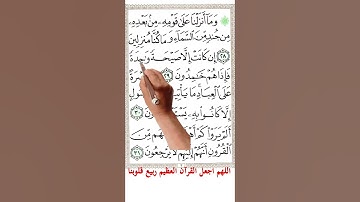 وَمَا أَنزَلْنَا عَلَىٰ قَوْمِهِۦ مِنۢ بَعْدِهِۦ
مِن جُندٍ مِّنَ ٱلسَّمَآءِ وَمَا كُنَّا مُنزِلِينَ
٢٨ إِن كَانَتْ إِلَّا صَيْحَةً وَٰحِدَةً
فَإِذَا هُمْ خَٰمِدُونَ ٢٩
عَلَى ٱلْعِبَادِ مَا
إِلَّا كَانُوا۟ بِهِۦ ٣٠
مِّنَ
ٱلْقُرُونِ أَنَّهُمْ إِلَيْهِمْ لَا يَرْجِعُونَ ٣١
اللهم اجعل القرآن العظيم ربيع قلوبنا